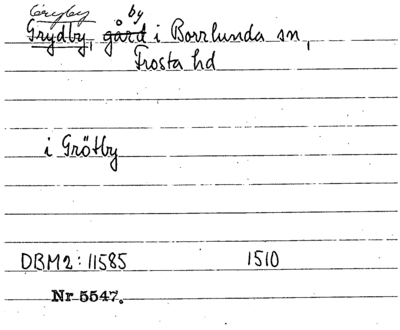 Gryby by
Grydby, gård i Borrlunda sn,
Frosta hd
i Grötby
DBM2: 11585 1510
Nr 5547.